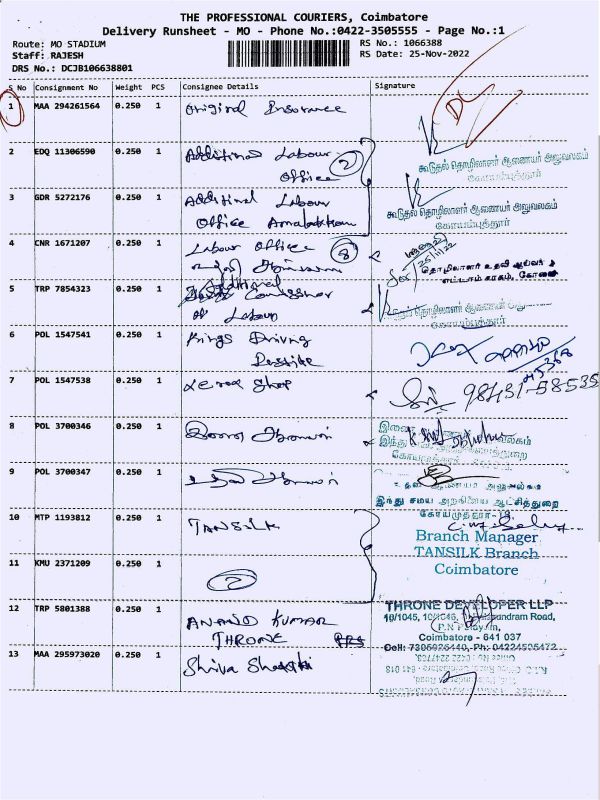 THE PROFESSIONAL COURIERS, Coimbatore
Delivery Runsheet - MO - Phone No.:0422-3505555 - Page No.:1
Route: MO STADIUM
RS No.: 1066388
Staff: RAJESH
RS Date: 25-Nov-2022
DRS No.: DCJB106638801
S No Consignment No Weight PCS Consignee Details Signature
1 MAA 294261564 0.250 1 Original Insurance
DL
2 EDQ 11306590 0.250 1 Additional Labour
Office
2
கூடுதல் தொழிலாளர் ஆணையர் அலுவலகம்
கோயம்புத்தூர்
3 GDR 5272176 0.250 1 Additional Labour
Office
கூடுதல் தொழிலாளர் ஆணையர் அலுவலகம்
கோயம்புத்தூர்
4 CNR 1671207 0.250 1 Labour Office
8
25/11/22
தொழிலாளர் உதவி ஆய்வர்
எட்டாம் வட்டம், கோவை
5 TRP 7854323 0.250 1 Additional
Comissioner
of Labour
தொழிலாளர் ஆணையர்
கோயம்புத்தூர்
6 POL 1547541 0.250 1 Kings Driving
45368
7 POL 1547538 0.250 1 Xerox Shop
98431-58535
8 POL 3700346 0.250 1 இணை ஆணையர்
இணை
இந்து
கோயம்புத்தூர்
9 POL 3700347 0.250 1 உதவி ஆணையர்
உதவி ஆணையர் அலுவலகம்
இந்து சமய அறநிலைய ஆட்சித்துறை
கோயமுத்தூர்-18
10 MTP 1193812 0.250 1 TANSILK
Branch Manager
TANSILK Branch
Coimbatore
11 KMU 2371209 0.250 1
2
12 TRP 5801388 0.250 1 ANAND KUMAR
THRONE
THRONE DEVELOPER LLP
Road,
Coimbatore - 641 037
Ph: 04224505472
13 MAA 295973020 0.250 1 Shiva Shakthi